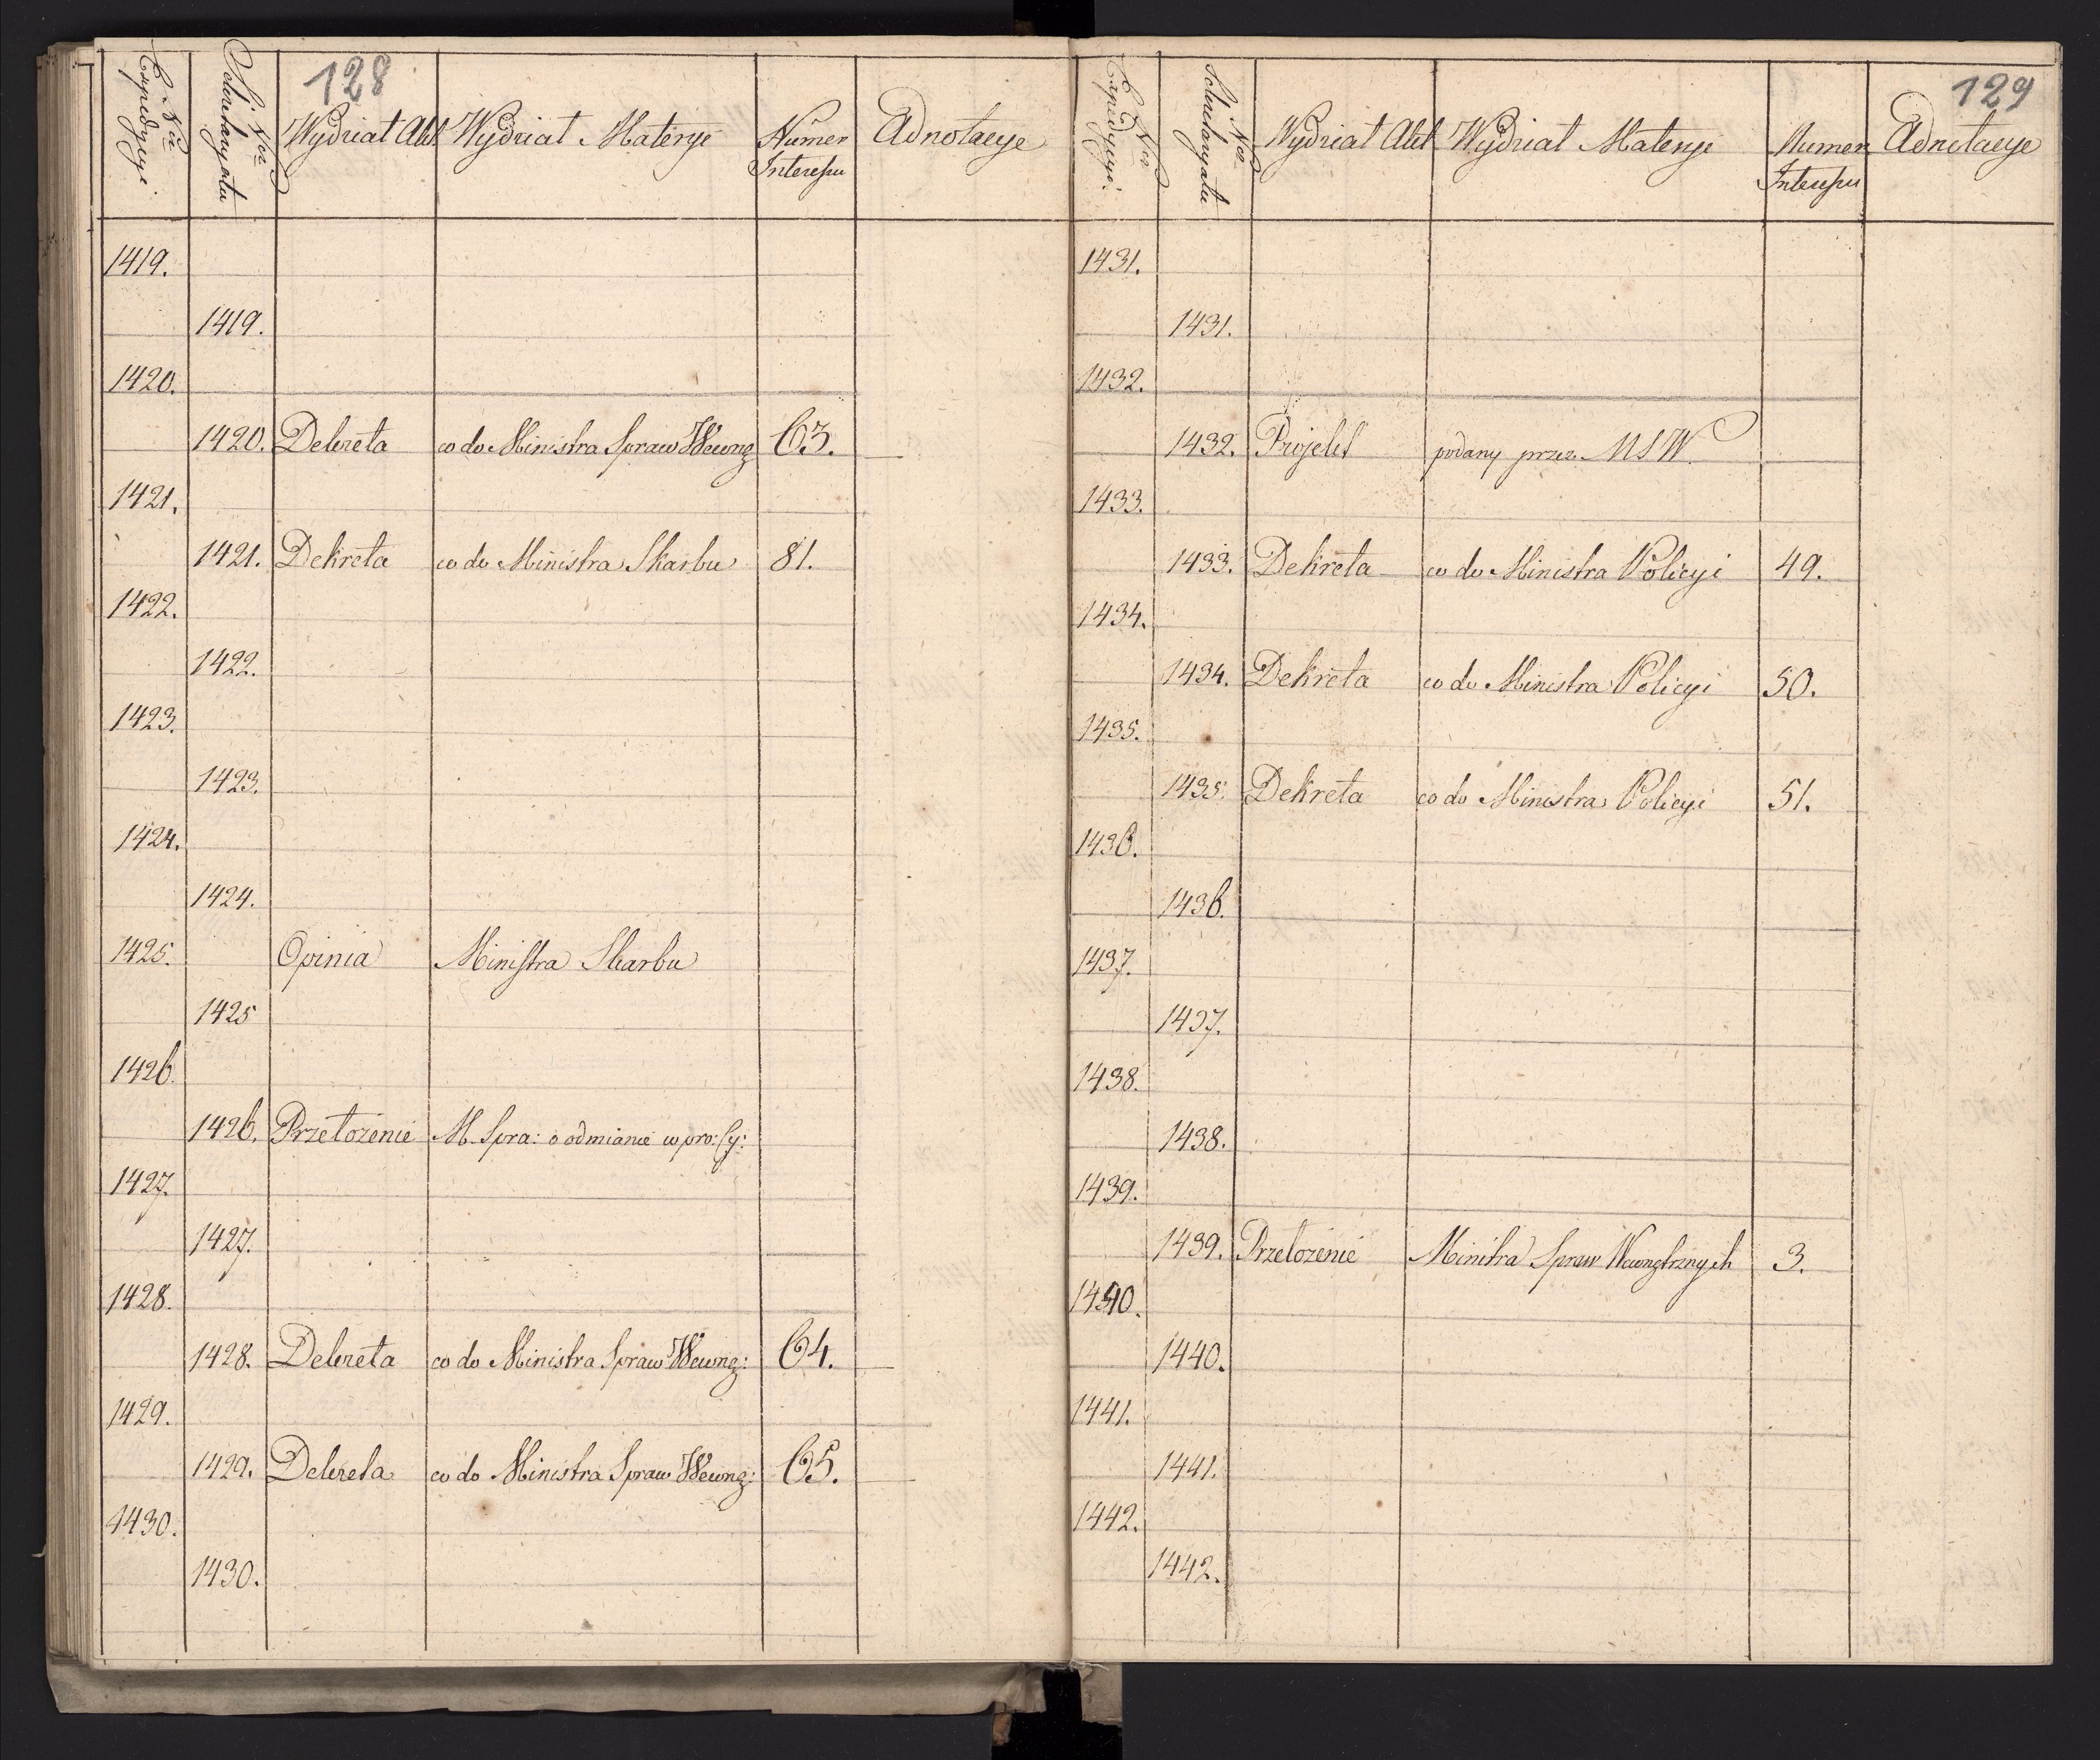 128
Nro Expedycyi
Nro Sekretaryatu
Wydział Akt
Wydział Materyi
Numer Interessu
Adnotacye
1419.
1419.
1420.
1420. Dekreta co do Ministra Spraw Wewng 63.
1421.
1421. Dekreta co do Ministra Skarbu 81.
1422.
1422.
1423.
1423.
1424.
1424.
1425. Opinia Ministra Skarbu
1425
1426.
1426. Przełożenie M. Spra: o odmianie w pro: Cy:
1427.
1427.
1428.
1428. Dekreta co do Ministra Spraw Wewng: 64.
1429.
1429. Dekreta co do Ministra Spraw Wewng: 65.
1430.
1430.
129
Nro Expedycyi:
Nro Sekretaryatu
Wydział Akt
Wydział Materyi
Numer Interessu
Adnotacye
1431.
1431.
1432.
1432. Projekt podany przez MSW.
1433.
1433. Dekreta co do Ministra Policyi 49.
1434.
1434. Dekreta co do Ministra Policyi 50.
1435.
1435. Dekreta co do Ministra Policyi 51.
1436.
1436.
1437.
1437.
1438.
1438.
1439.
1439. Przełożenie Minitra Spraw Wewnętrznych 3.
1440.
1440.
1441.
1441.
1442.
1442.